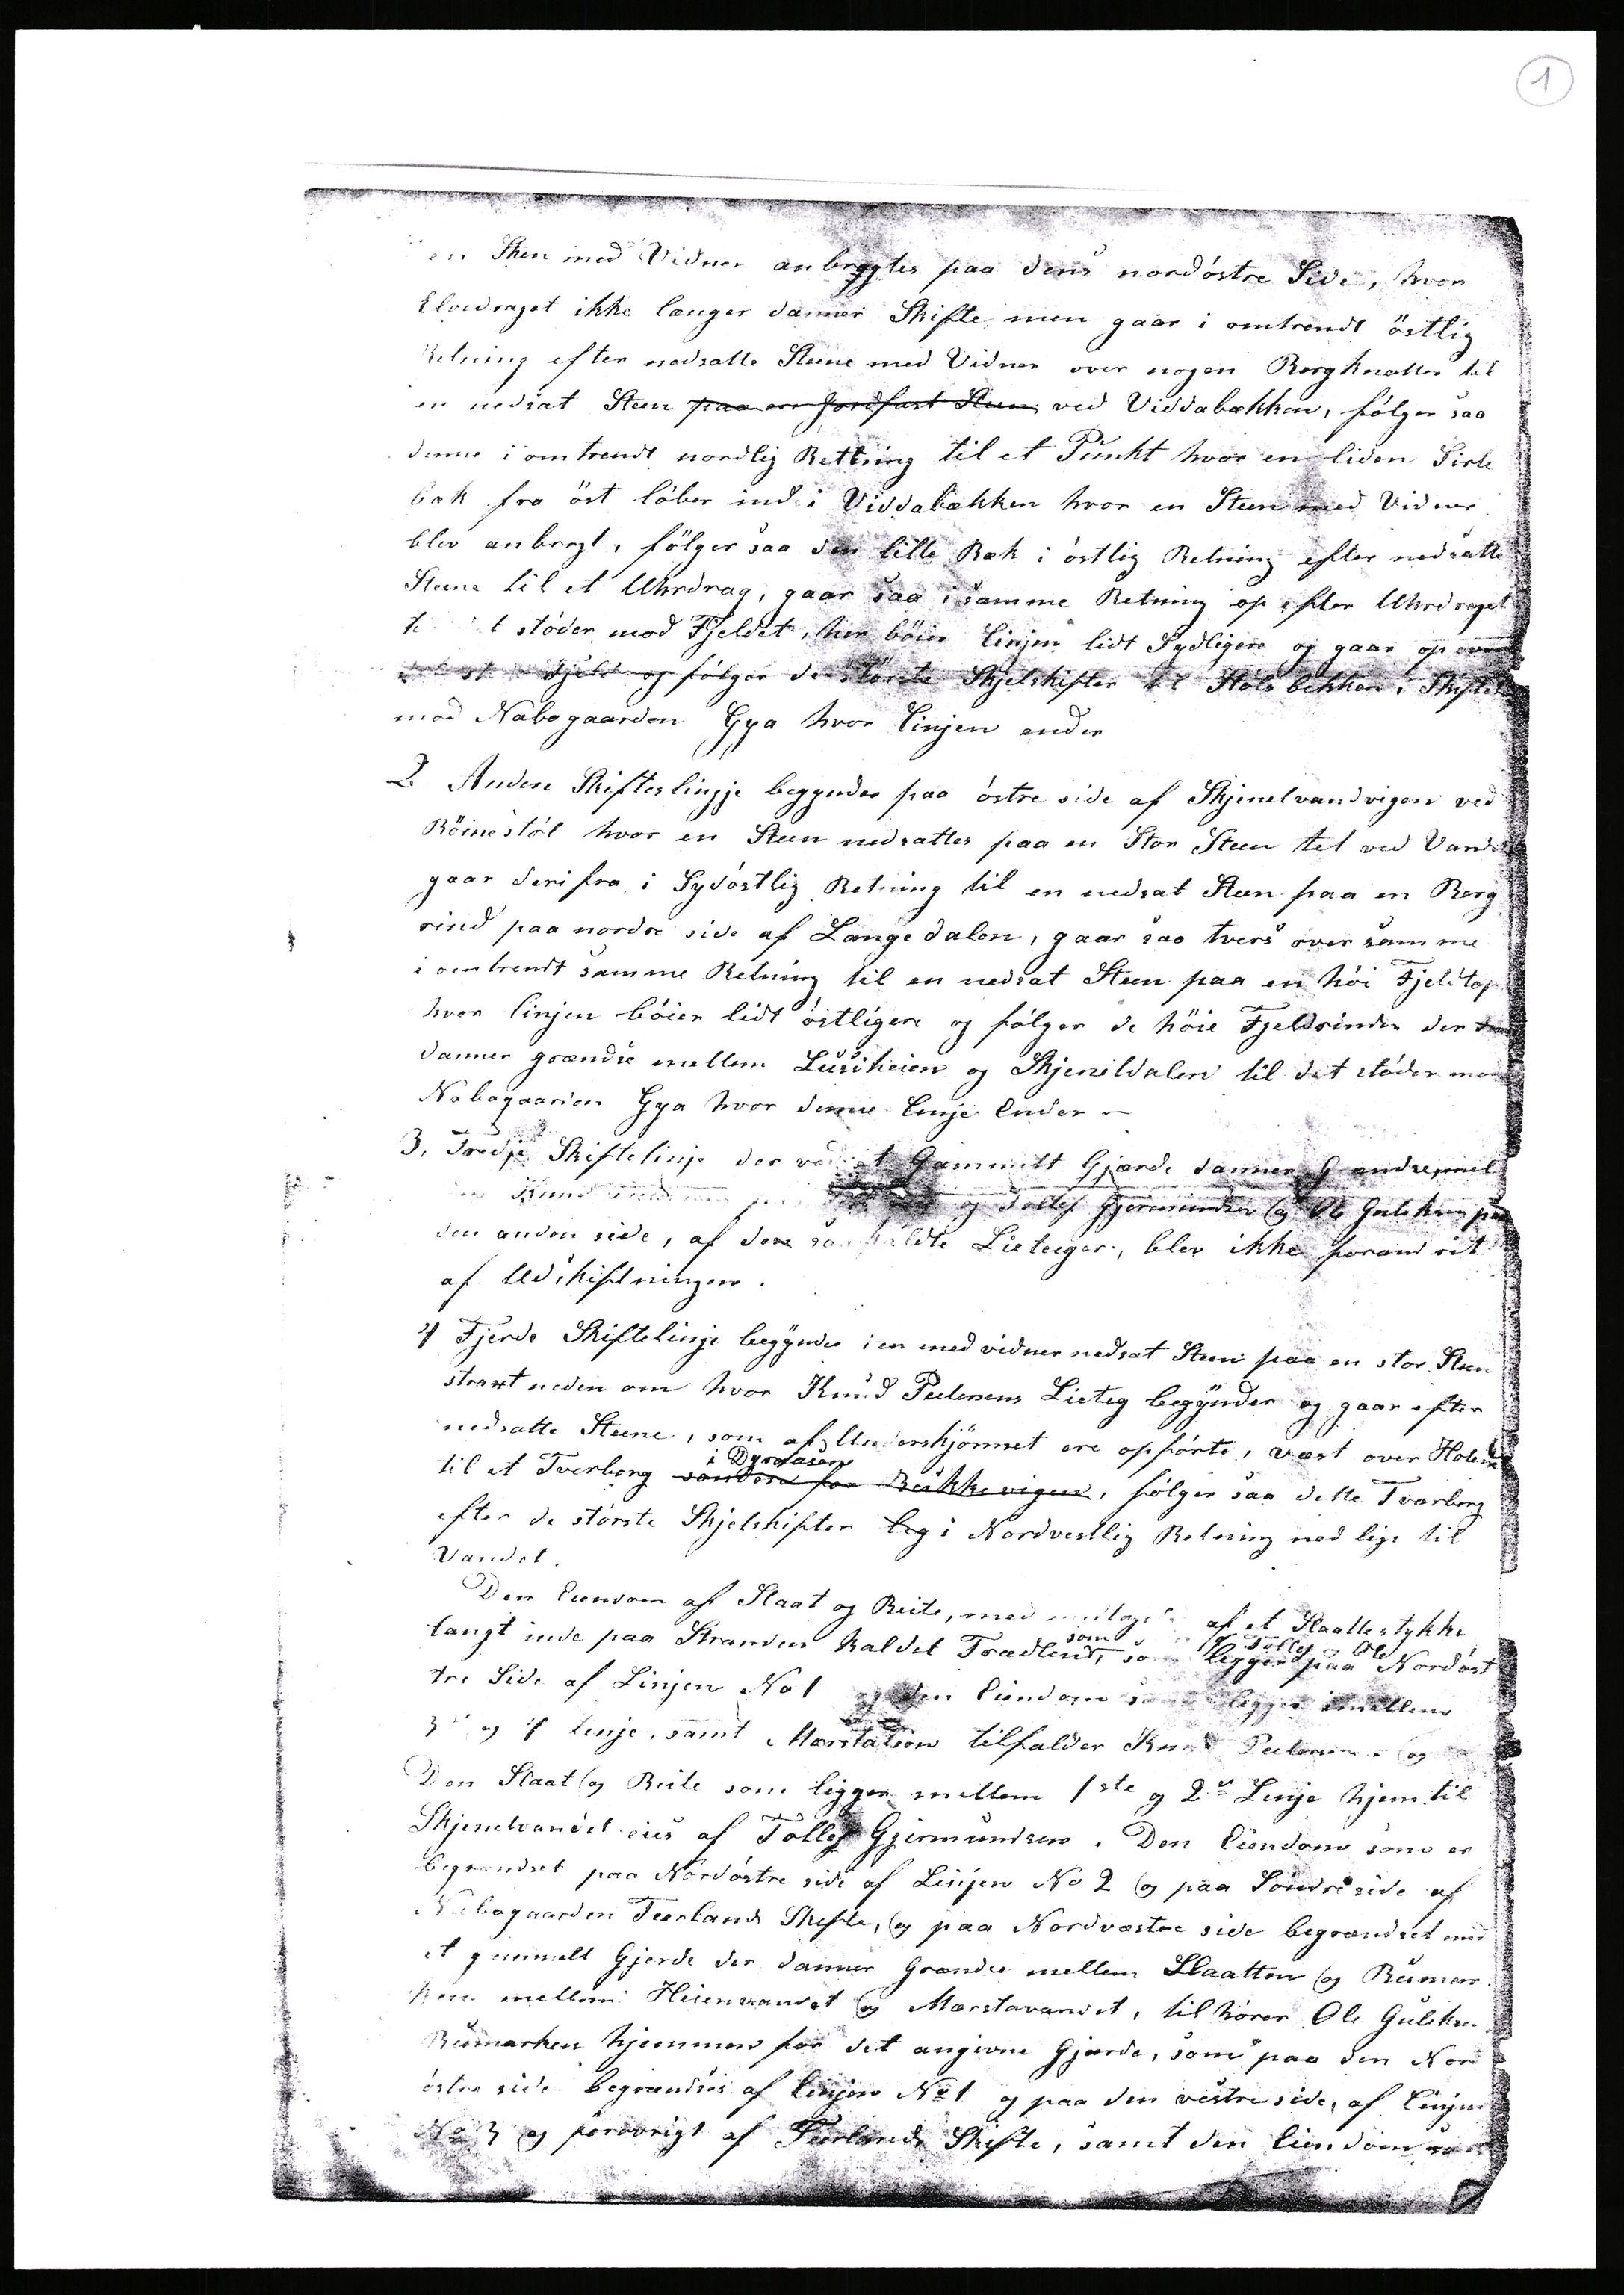 1
en Sten med Vidner anbragtes paa dens nordöstre Side, hvor
Elvedraget ikke længer danner Skifte men gaar i omtrendt östlig
Retning efter nedsatte Stene med Vidner over nogen Bergknatter til
en nedsat Steen paa en Jordfast Steen ved Viddabækken, fölger saa
denne i omtrendt nordlig Rettning til et Punkt hvor en liden Side
bæk fra öst löber ind i Viddabækken hvor en Steen med Vidner
blev anbragt, fölger saa den lille Bæk i östlig Retning efter nedsatte
Steene til et Uhrdrag, gaar saa i samme Retning op efter Uhrdraget
til det stöder mod Fjeldet, her böier Linjen lidt Sydligere og gaar op over
Fjeld og fölger de störste Skjelskifter til Stöls bekken i Skiftet
mod Nabogaarden Gya hvor Linjen ender
2 Anden Skifteslinje begynder paa östre side af Skjenelvandvigen ved
Röinestöl hvor en Steen nedsattes paa en Stor Steen tet ved Vandet
gaar derifra i Sydöstlig Retning til en nedsat Steen paa en Berg
rind paa nordre side af Langedalen, gaar saa tvers over samme
i omtrendt samme Retning til en nedsat Steen paa en höi Fjeldtop
hvor linjen böier lidt östligere og fölger de höie Fjeldrinder der
danner grændse mellem Lusiheien og Skjeneldalen til det stöder mod
Nabogaarden Gya hvor denne Linje Ender –
3, Tredje Skiftelinje der ved et Gammelt Gjærde danner Grændse mel
Knud og Tollef Gjermundsen og Ole Guliksen paa
den anden side, af den saakaldte Lieteiger, blev ikke forandret
af Udskiftningen.
4 Fjerde Skiftelinje begynder i en med vidner nedsat Steen paa en stor Steen
straxt neden om hvor Knud Pedersens Lieteg begynder og gaar efter
nedsatte Steene, som af Underskjönnet ere opförte, væst over
i Dyraasen
til et Tverberg söndere for Bukkevigen, fölger saa dette Tvarberg
efter de störste Skjelskifter og i Nordvestlig Retning ned lige til
Vandet.
Den Eiendom af Slaat og Beite, med undtagelse af et Slaattestykke
som Tollef og Ole
langt inde paa Stranden kaldet Trædlend, som ligger paa Nordöst
tre Side af Linjen No 1 og den Eiendom som ligger imellem
3die og 4 linje, samt Marstalien tilfalder Knud Pedersen. og
Den Slaat og Beite som ligger mellem 1ste og 2en Linje hjem til
Skjenelvandet eies af Tollef Gjermundsen. Den Eiendom som er
begrændset paa Nordöstre side af Linjen No 2 og paa Söndre side af
Nabogaarden Teerlands Skifte, og paa Nordvæstre side begrændset med
et gammelt Gjerde der danner Grændse mellem Slaatten og Bumar
ken mellem Heienvandet og Marstavandet, tilhörer Ole Guliksen
Bumarken hjemmen for det angivne Gjærde, som paa den Nord
östre side begrændses af linjen No 1 og paa den vestre side, af Linjen
No 3 og forövrigt af Teerlands Skifte, samt den Eiendom som